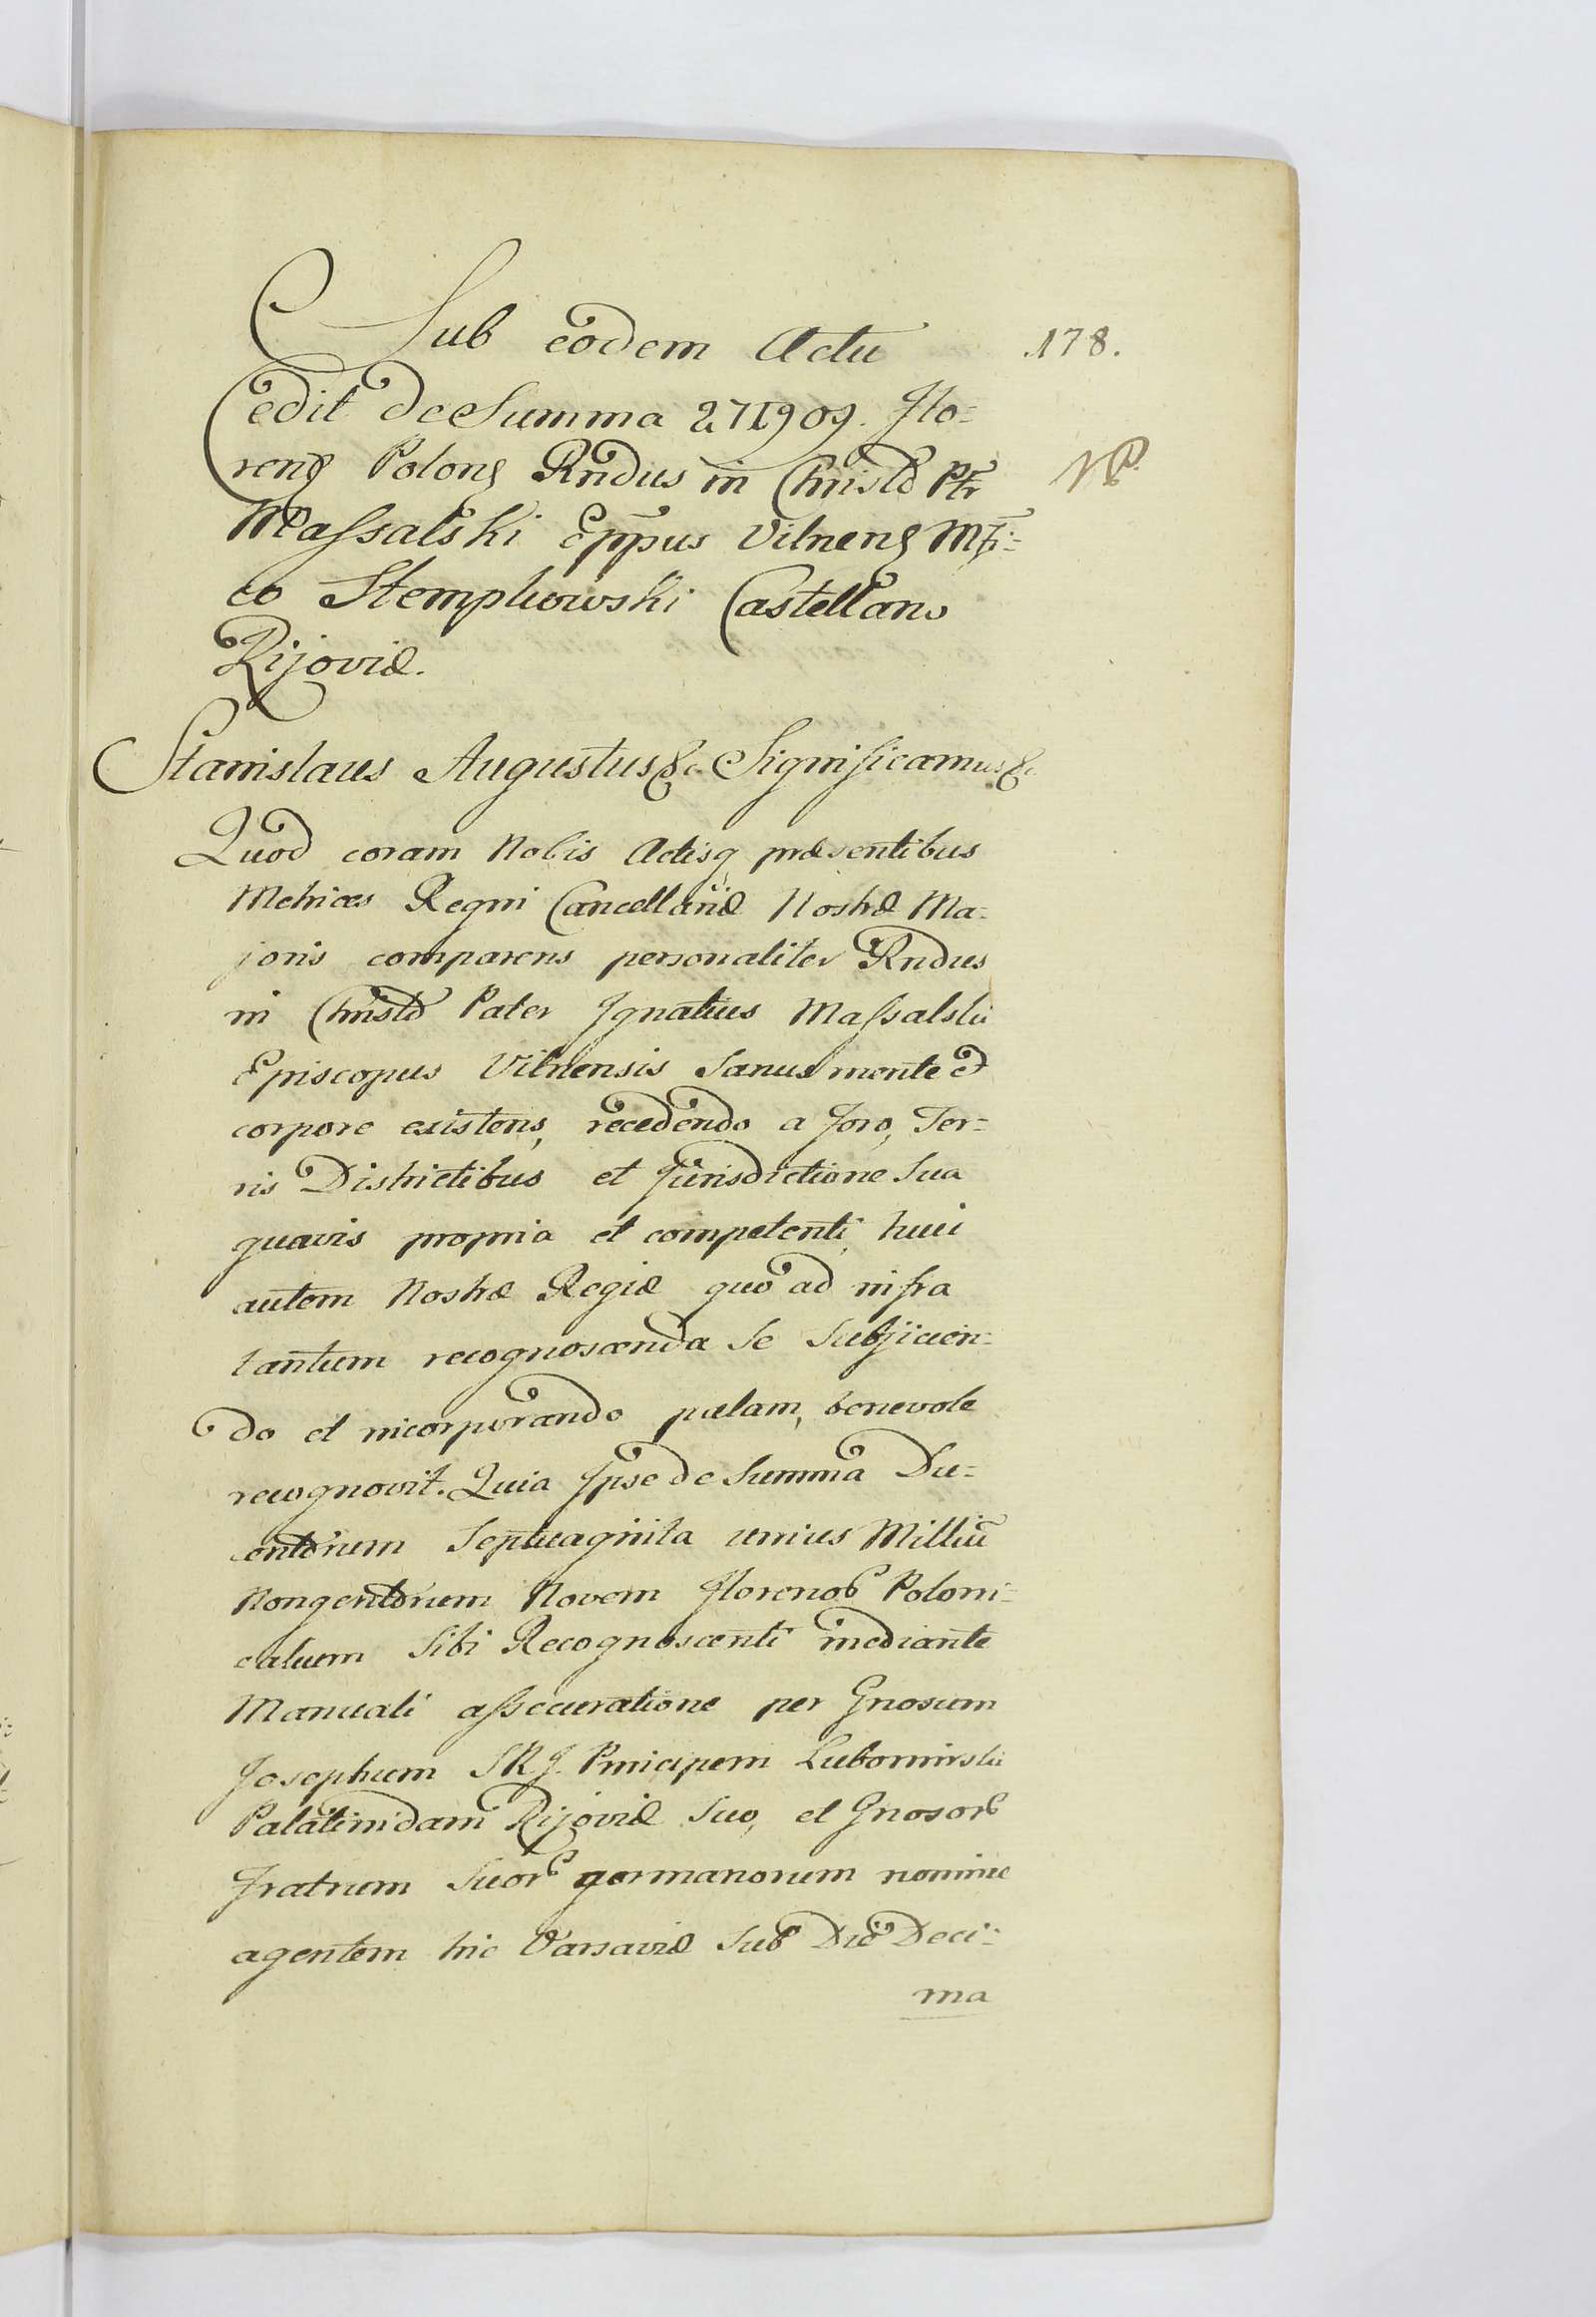 Sub eodem Actu
178.
Cedit de Summa 271909. Flo=
reng Polong Rndus in Christo Ptr
NP.
Massalski Eppus Vilneng Mfi=
co Stempkowski Castellano
Kijoviæ.
Stanislaus Augustus &c. Significamus &c
Quod coram Nobis Actisq præsentibus
Metrices Regni Cancellariæ Nostræ Ma=
joris comparens personaliter Rndus
in Christo Pater Ignatius Massalski
Episcopus Vilnensis Sanus mente et
corpore existens, recedendo a foro, Ter=
ris Districtibus et Jurisdictione Sua
quavis propria et competenti, huic
autem Nostræ Regiæ quo ad infra
tantum recognoscenda se Subjicien=
do et incorporando palam, benevole
recognovit. Quia Ipse de Summa Du=
centorum Septuaginta unius Milliū
Nongentorum Novem Florenor Poloni=
calium Sibi Recognoscenti mediante
Manuali assecuratione per Gnosum
Josephum S R J. Principem Lubomirski
Palatinidam Kijoviæ Suo, et Gnosor
Fratrum Suor germanorum nomine
agentem hic Varsaviæ Sub Die Deci=
ma